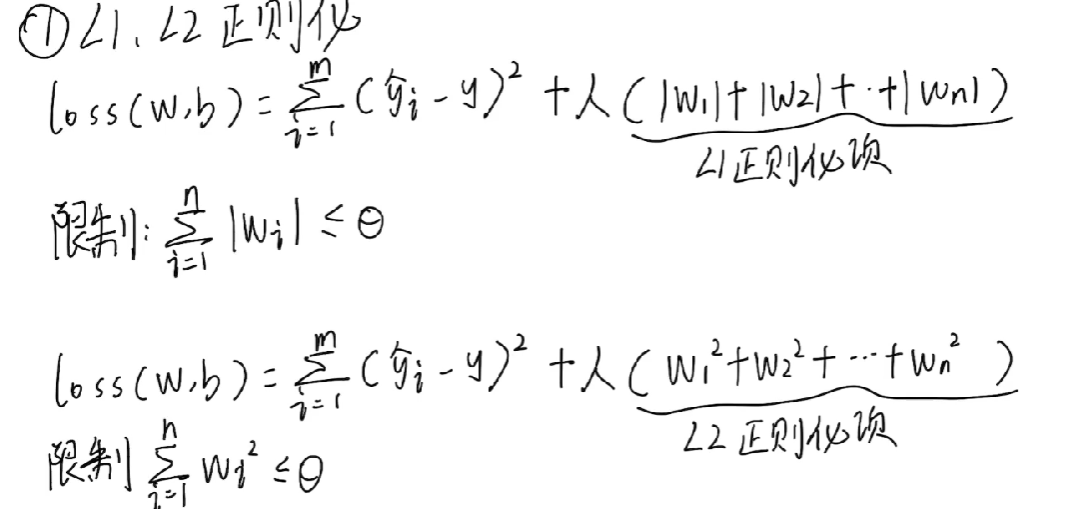 ① L1、L2 正则化
loss(w,b) = \sum_{i=1}^{m} (ŷ_i - y)^2 + λ(|w_1| + |w_2| + ·· + |w_n|)
L1正则化项
限制: \sum_{i=1}^{n} |w_i| ≤ θ
loss(w,b) = \sum_{i=1}^{m} (ŷ_i - y)^2 + λ(w_1^2 + w_2^2 + ··· + w_n^2)
L2 正则化项
限制 \sum_{i=1}^{n} w_i^2 ≤ θ